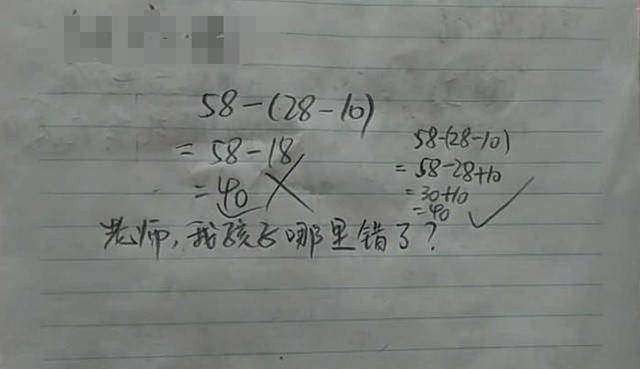 58-(28-10)
=58-18
=40
58-(28-10)
=58-28+10
=30+10
=40
老师,我孩子哪里错了?